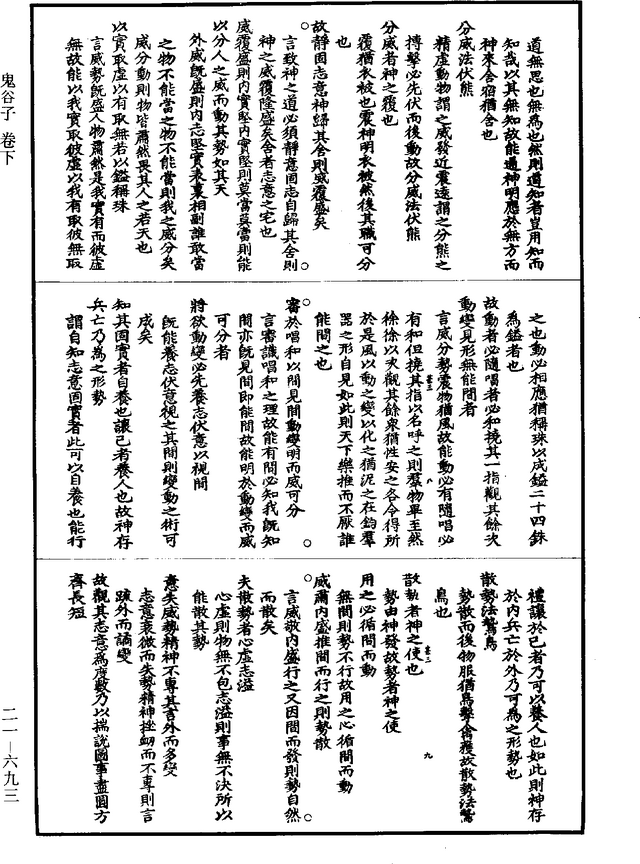 鬼谷子 卷下
二一—六九三
道無思也無為也然則道知者豈用知而
知哉以其無知故能通神明應於無方而
神來舍宿猶舍也
分威法伏熊
精虛動物謂之威發近震遠謂之分熊之
搏擊必先伏而後動故分威法伏熊
分威者神之覆也
覆猶衣被也震神明衣被然後其職可分
也
故靜固志意神歸其舍則威覆盛矣
言致神之道必須靜意固志自歸其舍則
神之威覆隆盛矣舍者志意之宅也
威覆盛則內實堅內實堅則莫當莫當則能
以分人之威而動其勢如其天
外威既盛則內志堅實表裏相副誰敢當
之物不能當之物不能當則我之威分矣
威分動則物皆肅然畏其人之若天也
以實取虛以有取無若以鎰稱珠
言威勢既盛人物肅然是我實有而彼虛
無故能以我實取彼虛以我有取彼無取
之也動必相應猶稱珠以成鎰二十四銖
為鎰者也
故動者必隨唱者必和撓其一指觀其餘次
動變見形無能間者
言威分勢震物猶風故能動必有隨唱必
有和但撓其指以名呼之則羣物畢至然
徐徐以次觀其餘衆猶性安之各令得所
於是風以動之變以化之猶泥之在鈞羣
器之形自見如此則天下樂推而不厭誰
能間之也
審於唱和以間見間動變明而威可分
言審識唱和之理故能有間必知我既知
間亦既見間即能間故能明於動變而威
可分者
將欲動變必先養志伏意以視間
既能養志伏意視之其間則變動之術可
成矣
知其固實者自養也讓己者養人也故神存
兵亡乃為之形勢
謂自知志意固實者此可以自養也能行
禮讓於己者乃可以養人也如此則神存
於內兵亡於外乃可為之形勢也
散勢法鷙鳥
勢散而後物服猶鳥擊禽獲故散勢法鷙
鳥也
散勢者神之使也
勢由神發故勢者神之使
用之必循間而動
無間則勢不行故用之必循間而動
威肅內盛推間而行之則勢散
言威敬內盛行之又因間而發則勢自然
而散矣
夫散勢者心虛志溢
心虛則物無不包志溢則事無不決所以
能散其勢
意失威勢精神不專其言外而多變
志意衰微而失勢精神挫衂而不專則言
疏外而譎變
故觀其志意為度數乃以揣說圖事盡圓方
齊長短